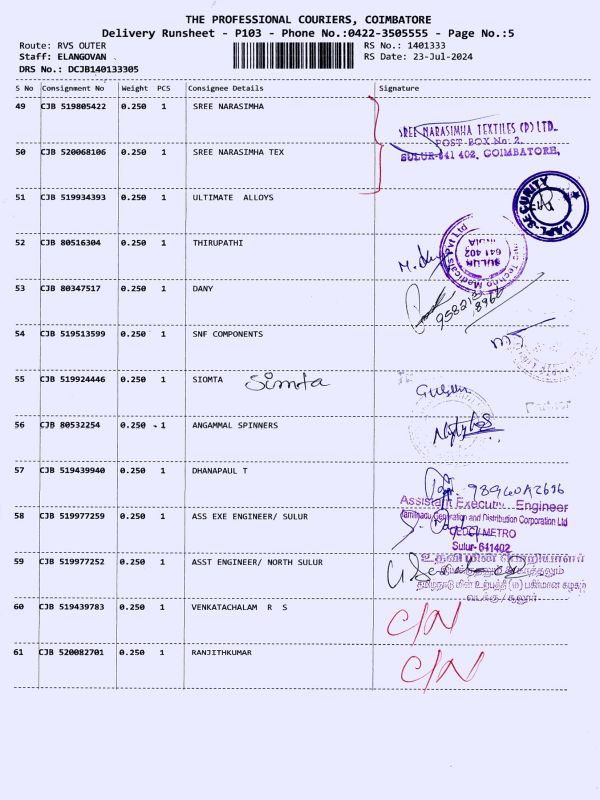 THE PROFESSIONAL COURIERS, COIMBATORE
Delivery Runsheet - P103 - Phone No.:0422-3505555 - Page No.:5
Route: RVS OUTER RS No.: 1401333
Staff: ELANGOVAN . RS Date: 23-Jul-2024
DRS No.: DCJB140133305
S No Consignment No Weight PCS Consignee Details Signature
49 CJB 519805422 0.250 1 SREE NARASIMHA
SREE NARASIMHA TEXTILES (P) LTD.,
POST BOX No: 2,
50 CJB 520068106 0.250 1 SREE NARASIMHA TEX SULUR-641 402, COIMBATORE,
51 CJB 519934393 0.250 1 ULTIMATE ALLOYS
UAPL-SECURITY
52 CJB 80516304 0.250 1 THIRUPATHI
Techno Medicals Pvt Ltd
SULUR
641 402
INDIA
53 CJB 80347517 0.250 1 DANY
54 CJB 519513599 0.250 1 SNF COMPONENTS
55 CJB 519924446 0.250 1 SIOMTA Simta
56 CJB 80532254 0.250 1 ANGAMMAL SPINNERS
57 CJB 519439940 0.250 1 DHANAPAUL T
Assistant Executive Engineer
58 CJB 519977259 0.250 1 ASS EXE ENGINEER/ SULUR Tamilnadu Generation and Distribution Corporation Ltd
CEDC / METRO
Sulur-641402
59 CJB 519977252 0.250 1 ASST ENGINEER/ NORTH SULUR
உதவி மின் பொறியாளர்
வடக்கு / சூலூர்
60 CJB 519439783 0.250 1 VENKATACHALAM R S C/N
61 CJB 520082701 0.250 1 RANJITHKUMAR C/N